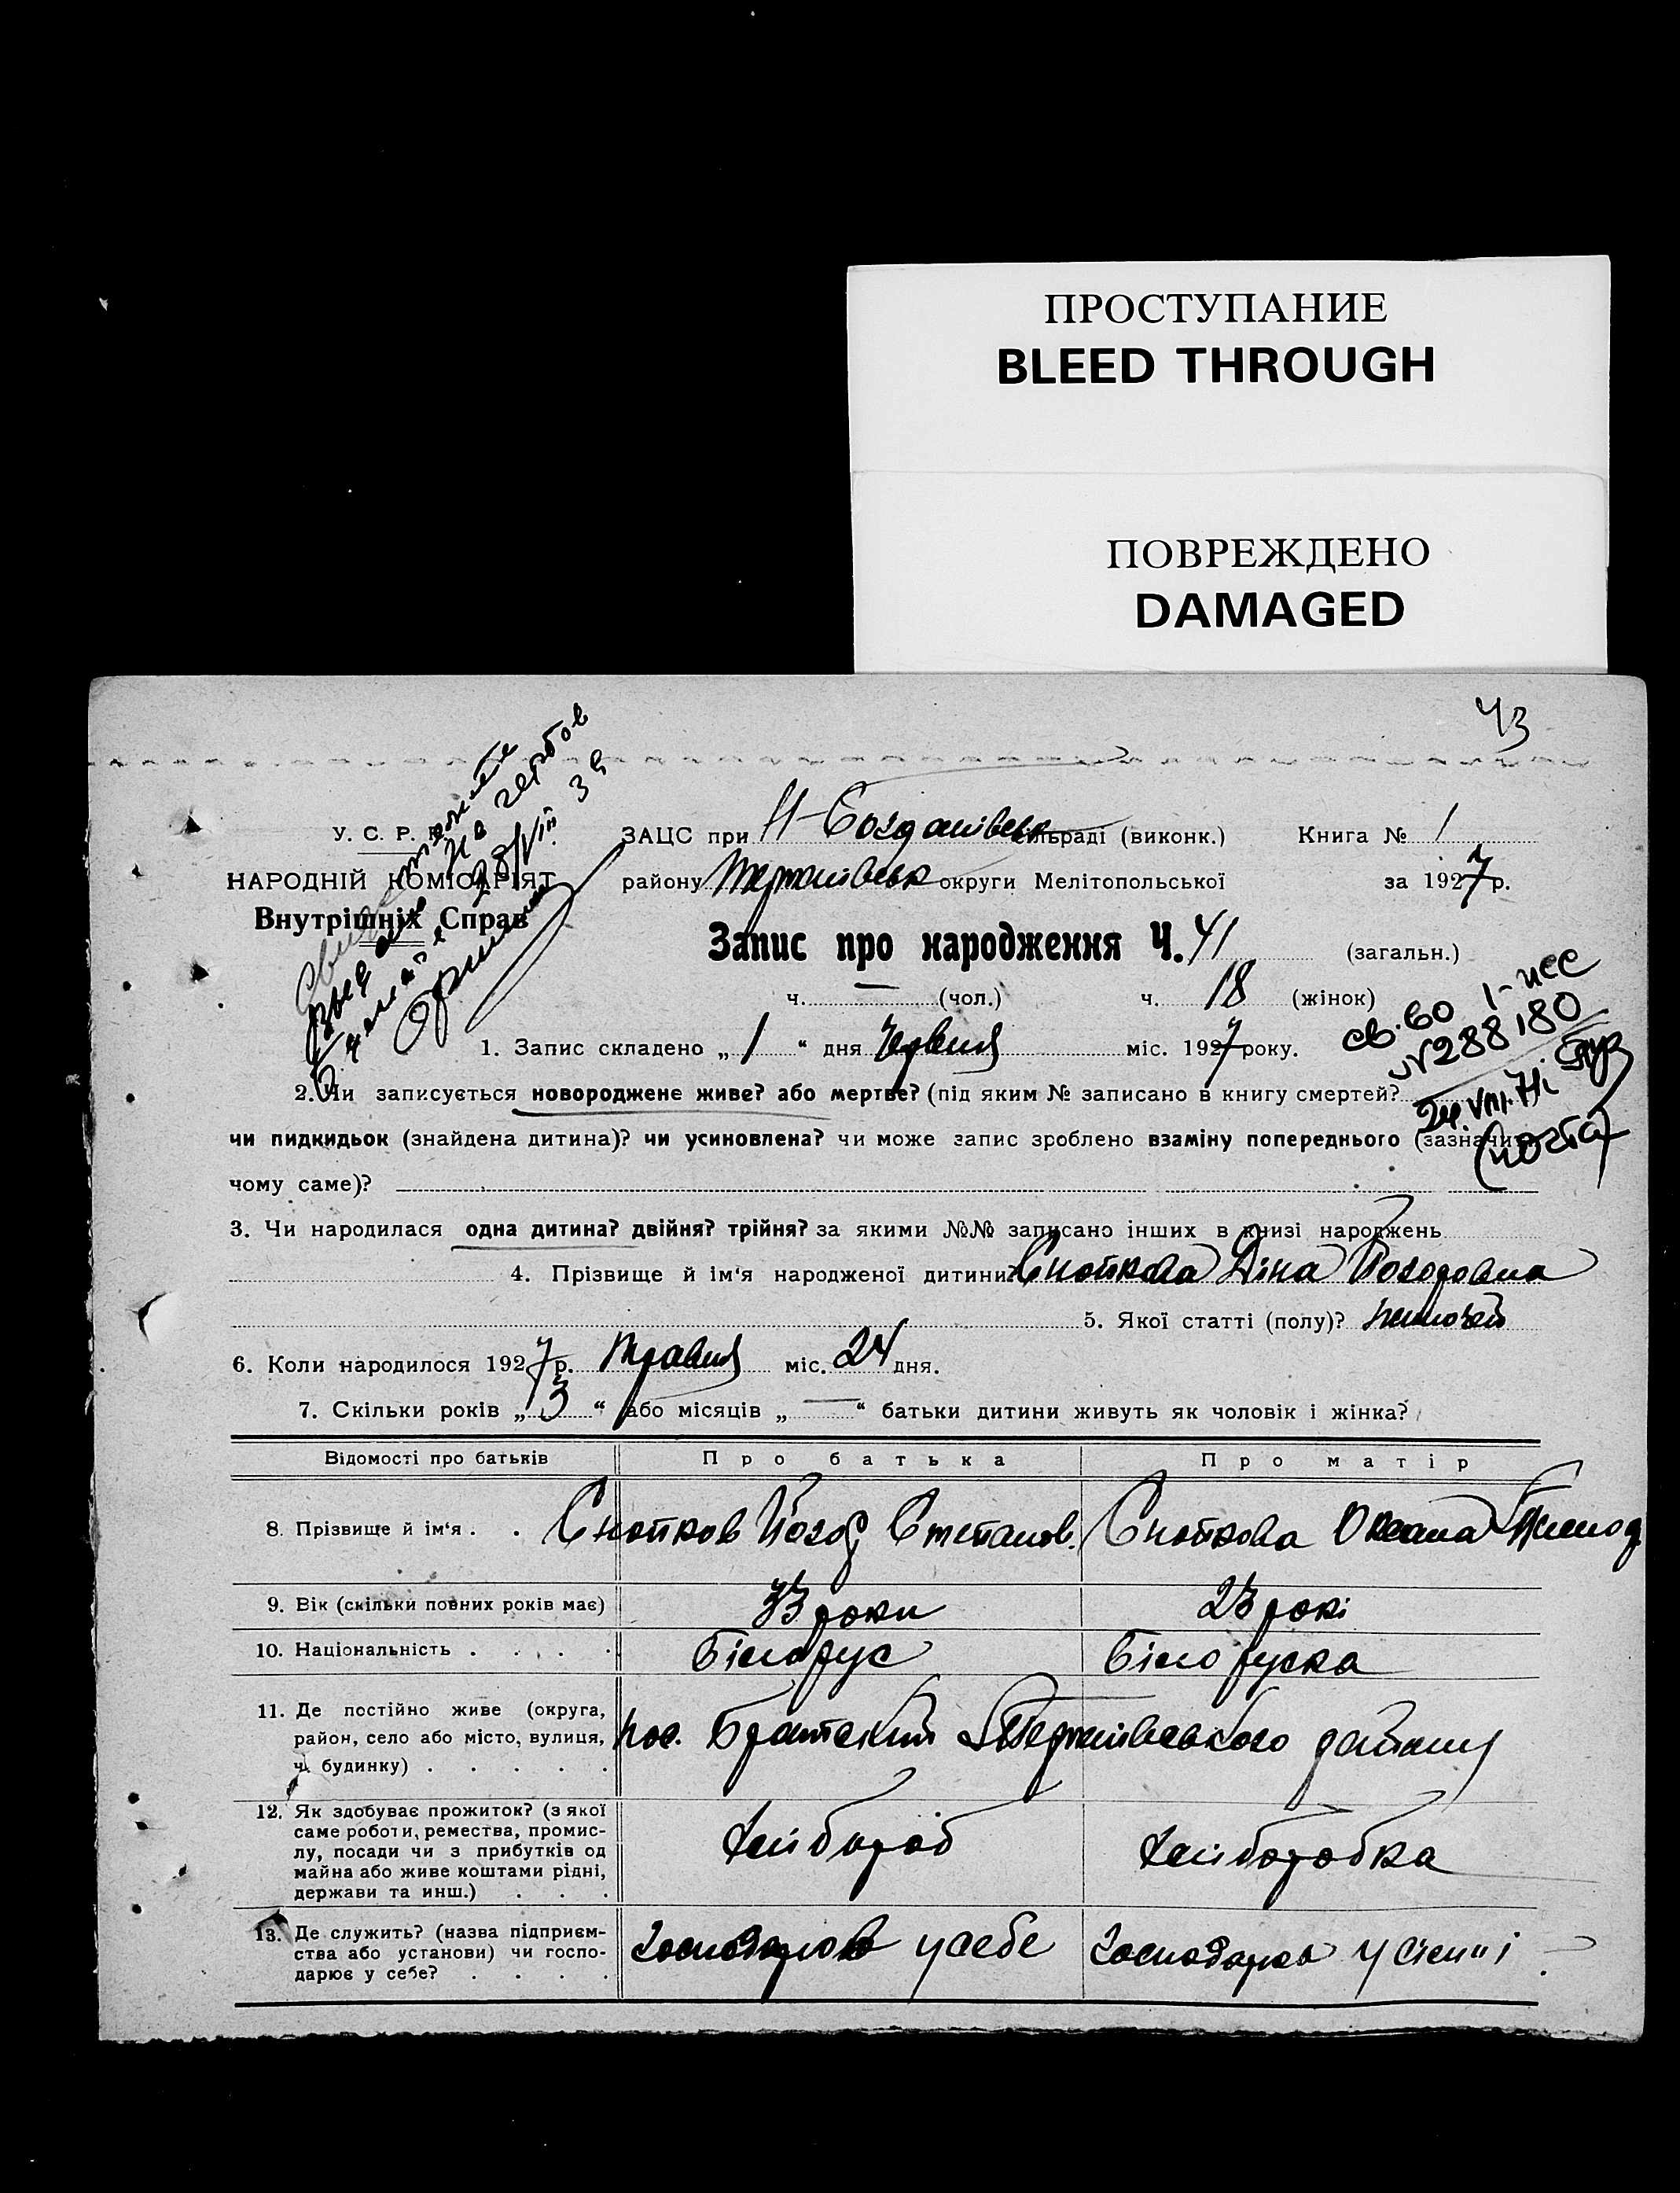 ПРОСТУПАНИЕ
BLEED THROUGH
ПОВРЕЖДЕНО
DAMAGED
43
У. С. Р. Р.
НАРОДНІЙ КОМІСАРІЯТ
Внутрішніх Справ
28/VIII 39
ЗАЦС при Н-Богданівськ сільраді (виконк.) Книга № 1
району Терпинівськ округи Мелітопольської за 1927 р.
Запис про народження Ч. 41 (загальн.)
ч. — (чол.) ч. 18 (жінок)
1. Запис складено „ 1 “ дня Червня міс. 1927 року.
св. 60 1-ЦЕС
№ 288180
24.VIII.71
(почта)
2. Чи записується новороджене живе? або мертве? (під яким № записано в книгу смертей?
чи пидкидьок (знайдена дитина)? чи усиновлена? чи може запис зроблено взаміну попереднього (зазначити
чому саме)?
3. Чи народилася одна дитина? двійня? трійня? за якими №№ записано інших в книзі народжень
4. Прізвище й ім‘я народженої дитини Снопкова Діна
5. Якої статті (полу)? жиночей
6. Коли народилося 1927 р. Травня міс. 24 дня.
7. Скільки років „ 3 “ або місяців „ — “ батьки дитини живуть як чоловік і жінка?
Відомості про батьків Про батька Про матір
8. Прізвище й ім‘я . . Снопков Степанов. Снопкова Оксана
9. Вік (скільки повних років має) 33 роки 23 рокі
10. Національність . . . . Білорус Білоруска
11. Де постійно живе (округа,
район, село або місто, вулиця,
ч. будинку) . . . . .
пос. Братский Терпинівського району
12. Як здобуває прожиток? (з якої
саме роботи, ремества, промис-
лу, посади чи з прибутків од
майна або живе коштами рідні,
держави та инш.) . . .
хлібороб хліборобка
13. Де служить? (назва підприєм-
ства або установи) чи госпо-
дарює у себе? . . . .
усебе